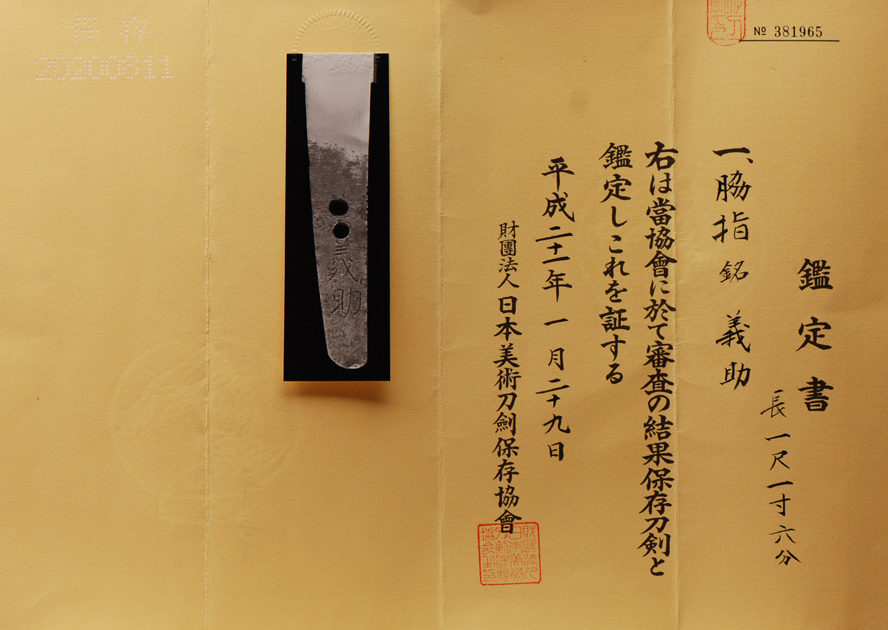 № 381965
鑑定書
一、脇指 銘 義助
長一尺一寸六分
右は當協會に於て審査の結果保存刀剣と
鑑定しこれを証する
平成二十一年一月二十九日
財團法人日本美術刀劍保存協會
義助
20200611